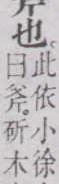 斧也。
此依小徐
曰斧。斫木